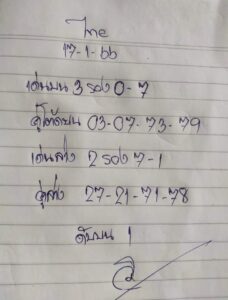 ไทย
17-1-66
เด่นบน 3 รอง 0-7
คู่โต๊ดบน 03-07-73-79
เด่นล่าง 2 รอง 7-1
คู่ล่าง 27-21-71-78
ดับบน 1